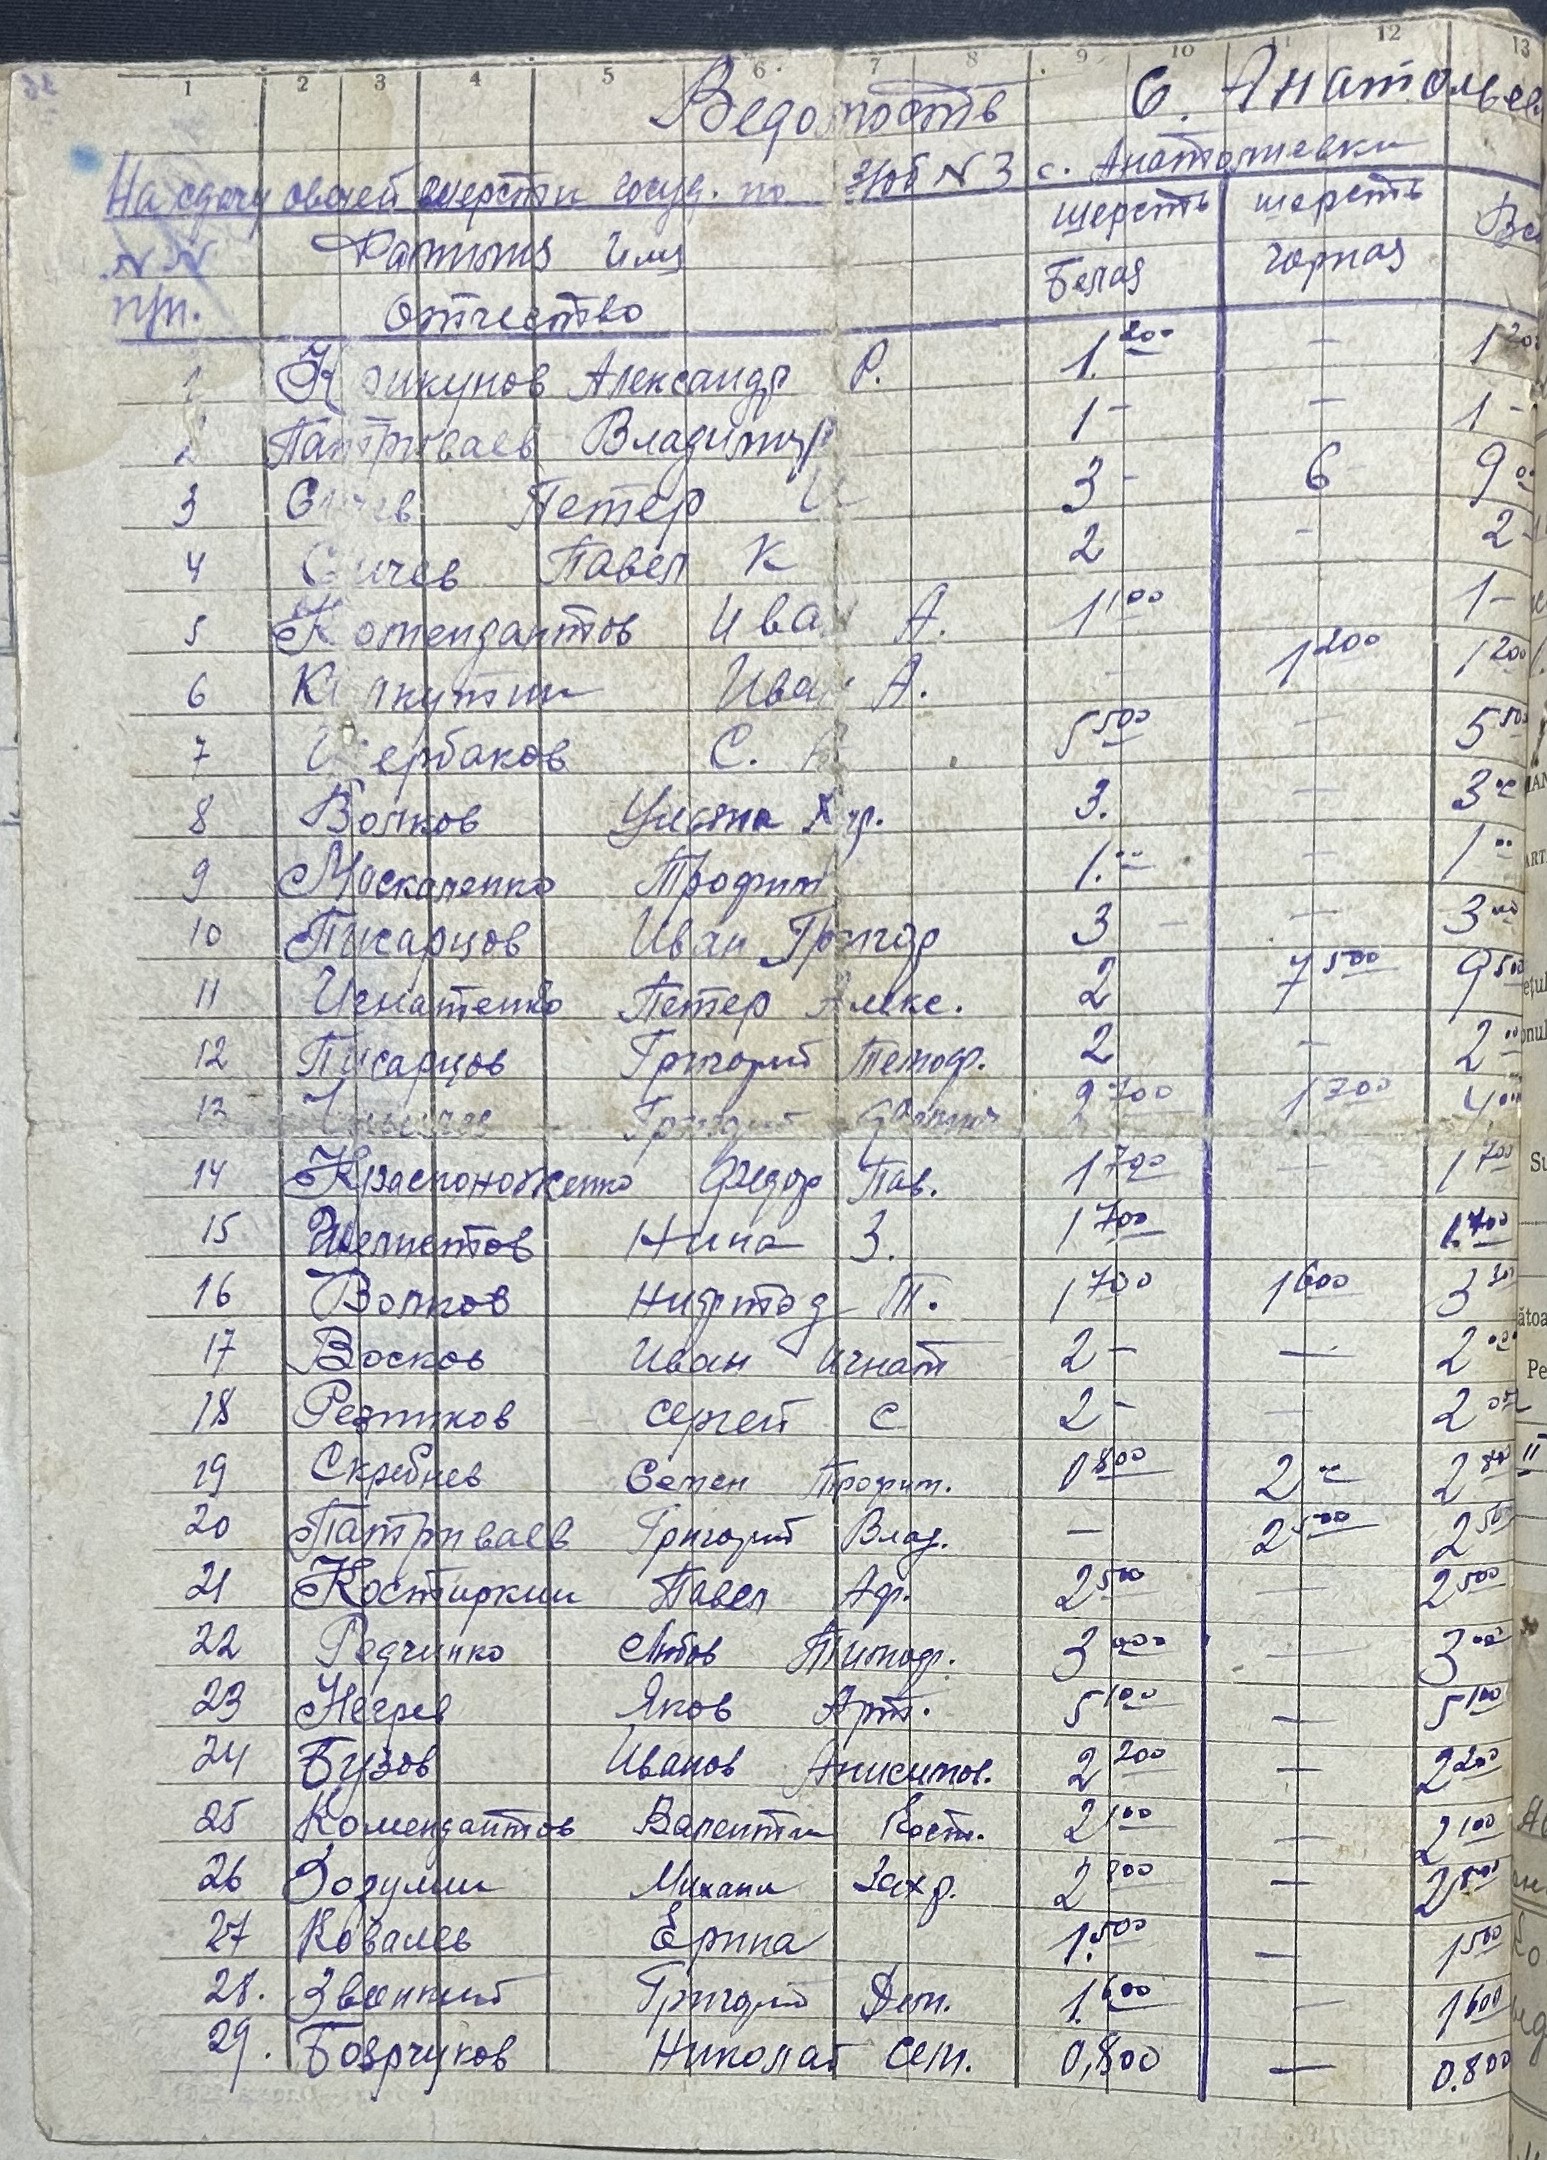 1 2 3 4 5 6 7 8 9 10 11 12 13
Ведомость С. Анатольев
На сдачу овечей шерсти госуд. по N 3 с. Анатолиевки
N N Фамилия Имя шерсть шерсть Вс
пр. Отчество Белая чорная
1 Александр Р. 1.200 – 1 200
2 Патриваев Владимир 1 – – 1 –
3 Петер 3 – 6 – 9 00
4 Сичев Павел К 2 – 2 –
5 Комендантов Иван А. 1 00 1 –
6 Иван А. – 1 200 1 200
7 Щербаков С. 5 500 – 5 500
8 Волков 3. – 3 00
9 Москаленко Трофим 1.00 – 1 00
10 Писарцов Иван Григор 3 – – 3 00
11 Игнатенко Петер Алекс. 2 7 500 9 500
12 Писарцов Григорий Тимоф. 2 – 2 00
13 Григорий 2 700 1 700 4
14 Красноноженко Федор Пав. 1 700 – 1 700
15 Шелпетов Нина З. 1 700 1.700
16 Волков Т. 1 700 1 600 3 300
17 Восков Иван Игнат 2 – – 2 00
18 Резников Сергей С 2 – – 2 00
19 Скребнев Семен Трофим. 0 800 2 00 2 800
20 Патриваев Григорий Влад. – 2 500 2 500
21 Костиркин Павел Аф. 2 500 – 2 500
22 Редчинко Любов Тимоф. 3 000 – 3 00
23 Негрев Яков Арт. 5 100 – 5 100
24 Бузов Иванов Анисимов. 2 200 – 2 200
25 Комендантов Валентин Кост. 2 100 – 2 100
26 Михаил Захр. 2 800 – 2 800
27 Ковалев Ерина 1.500 – 1 500
28. Григорий Дем. 1.600 – 1 600
29. Боярчуков Николай Сем. 0,800 – 0.800